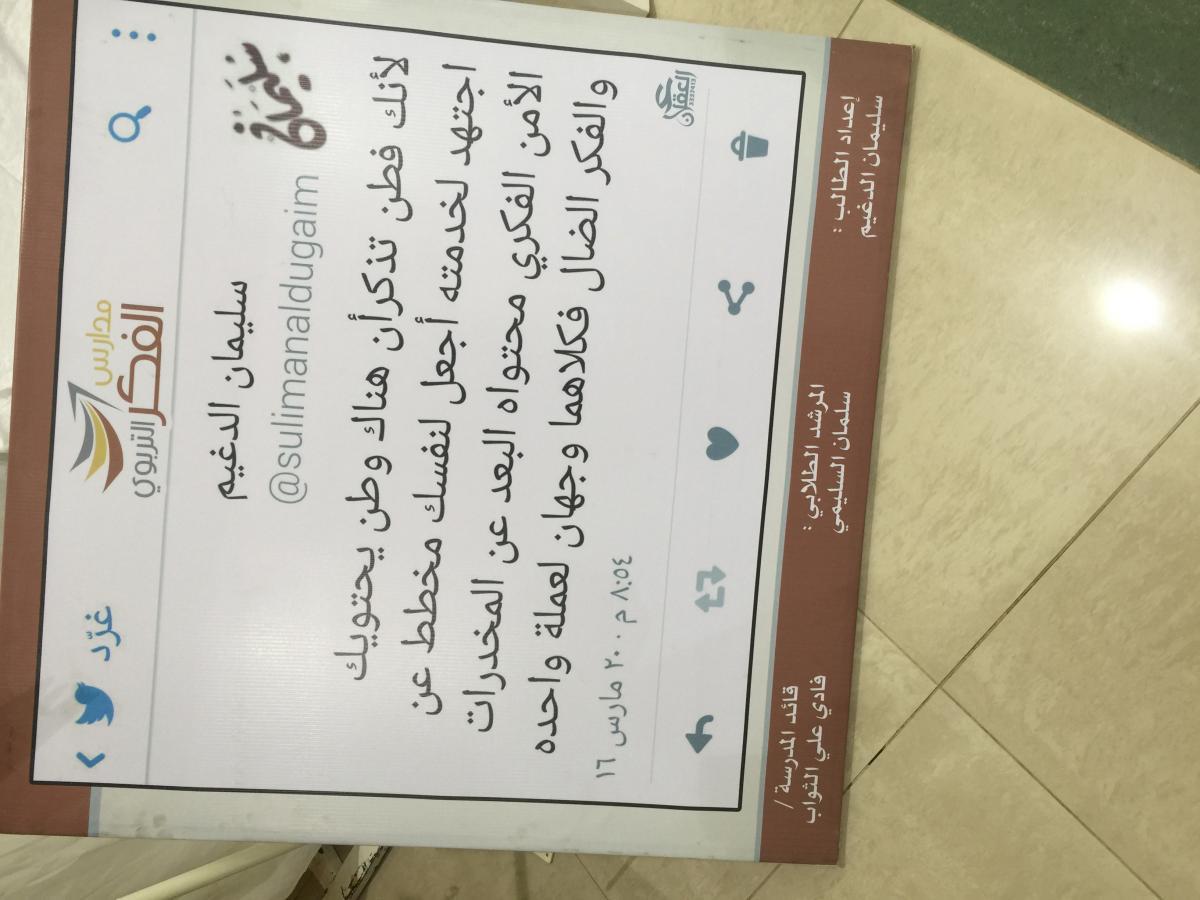 غرّد
مدارس
الفكر
التربوي
سليمان الدغيم
@sulimanaldugaim
لأنك فطن تذكرأن هناك وطن يحتويك
اجتهد لخدمته أجعل لنفسك مخطط عن
الأمن الفكري محتواه البعد عن المخدرات
والفكر الضال فكلاهما وجهان لعملة واحده
٨:٥٤ م ٢٠٠ مارس ١٦
إعداد الطالب :
سليمان الدغيم
المرشد الطلابي :
سلمان السليمي
قائد المدرسة /
فادي علي الثواب